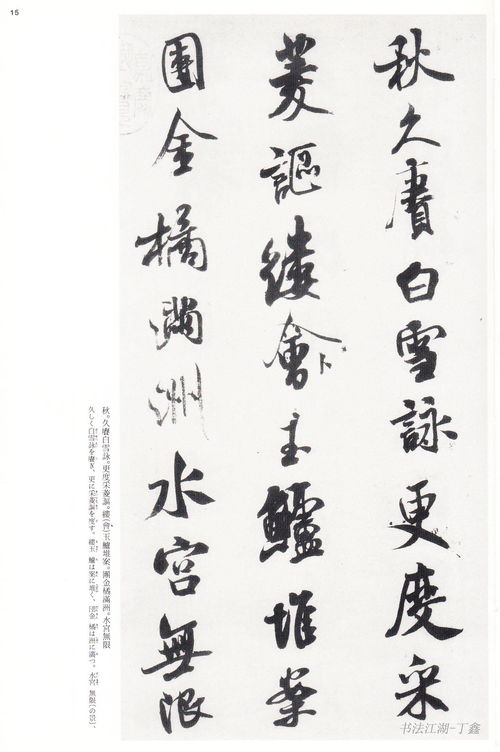 15
秋久賡白雪詠更度采
菱謳縷會卜玉鱸堆案
團金橘滿洲水宮無限
秋。久賡白雪詠。更度采菱謳。縷(會)玉鱸堆案。團金橘滿洲。水宮無限
久しく白雪詠を賡ぎ、更に采菱謳を度す。縷玉 鱸は案に堆く、団金 橘は洲に満つ。水宮 無限(の景)、
书法江湖-丁鑫